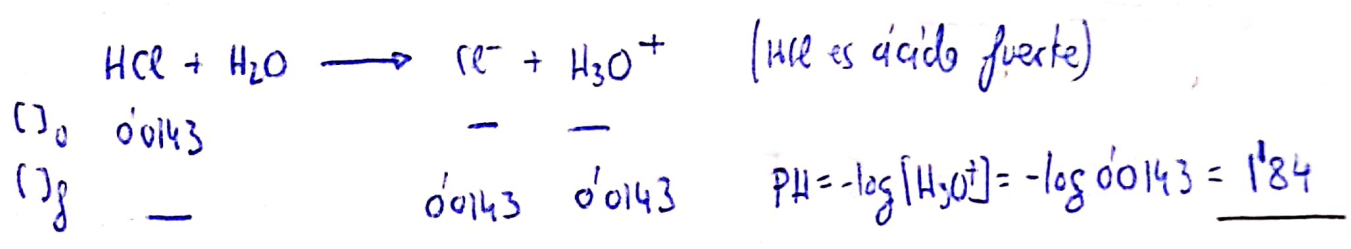 HCl + H₂O ⟶ Cl⁻ + H₃O⁺ (HCl es ácido fuerte)
[ ]₀ 0'0143 — —
[ ]f — 0'0143 0'0143 PH = -log[H₃O⁺] = -log 0'0143 = 1'84